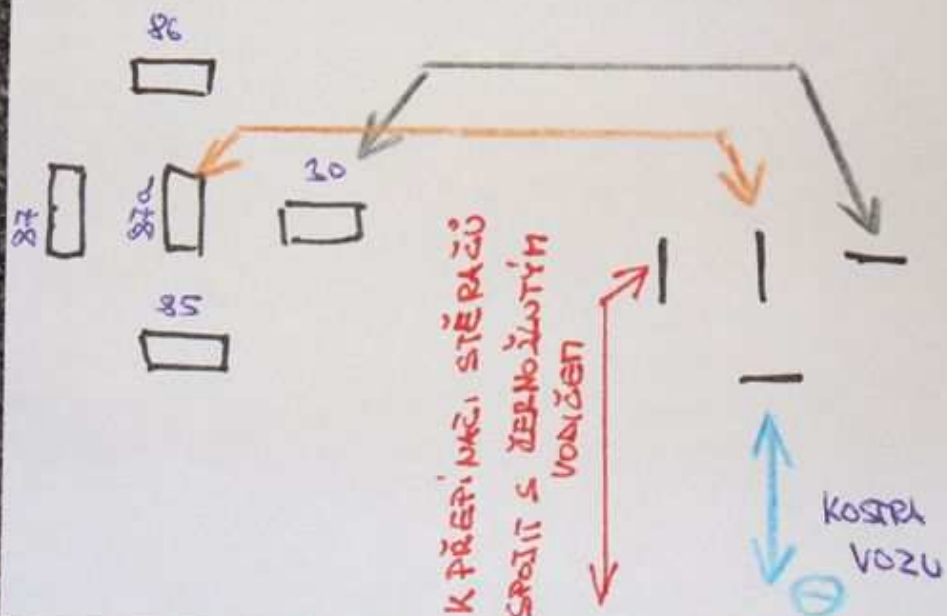 86
87
87a
30
85
K PŘEPÍNAČI STĚRAČŮ
SPOJIT S ČERNOŽLUTÝM
VODIČEM
KOSTRA
VOZU
⊖